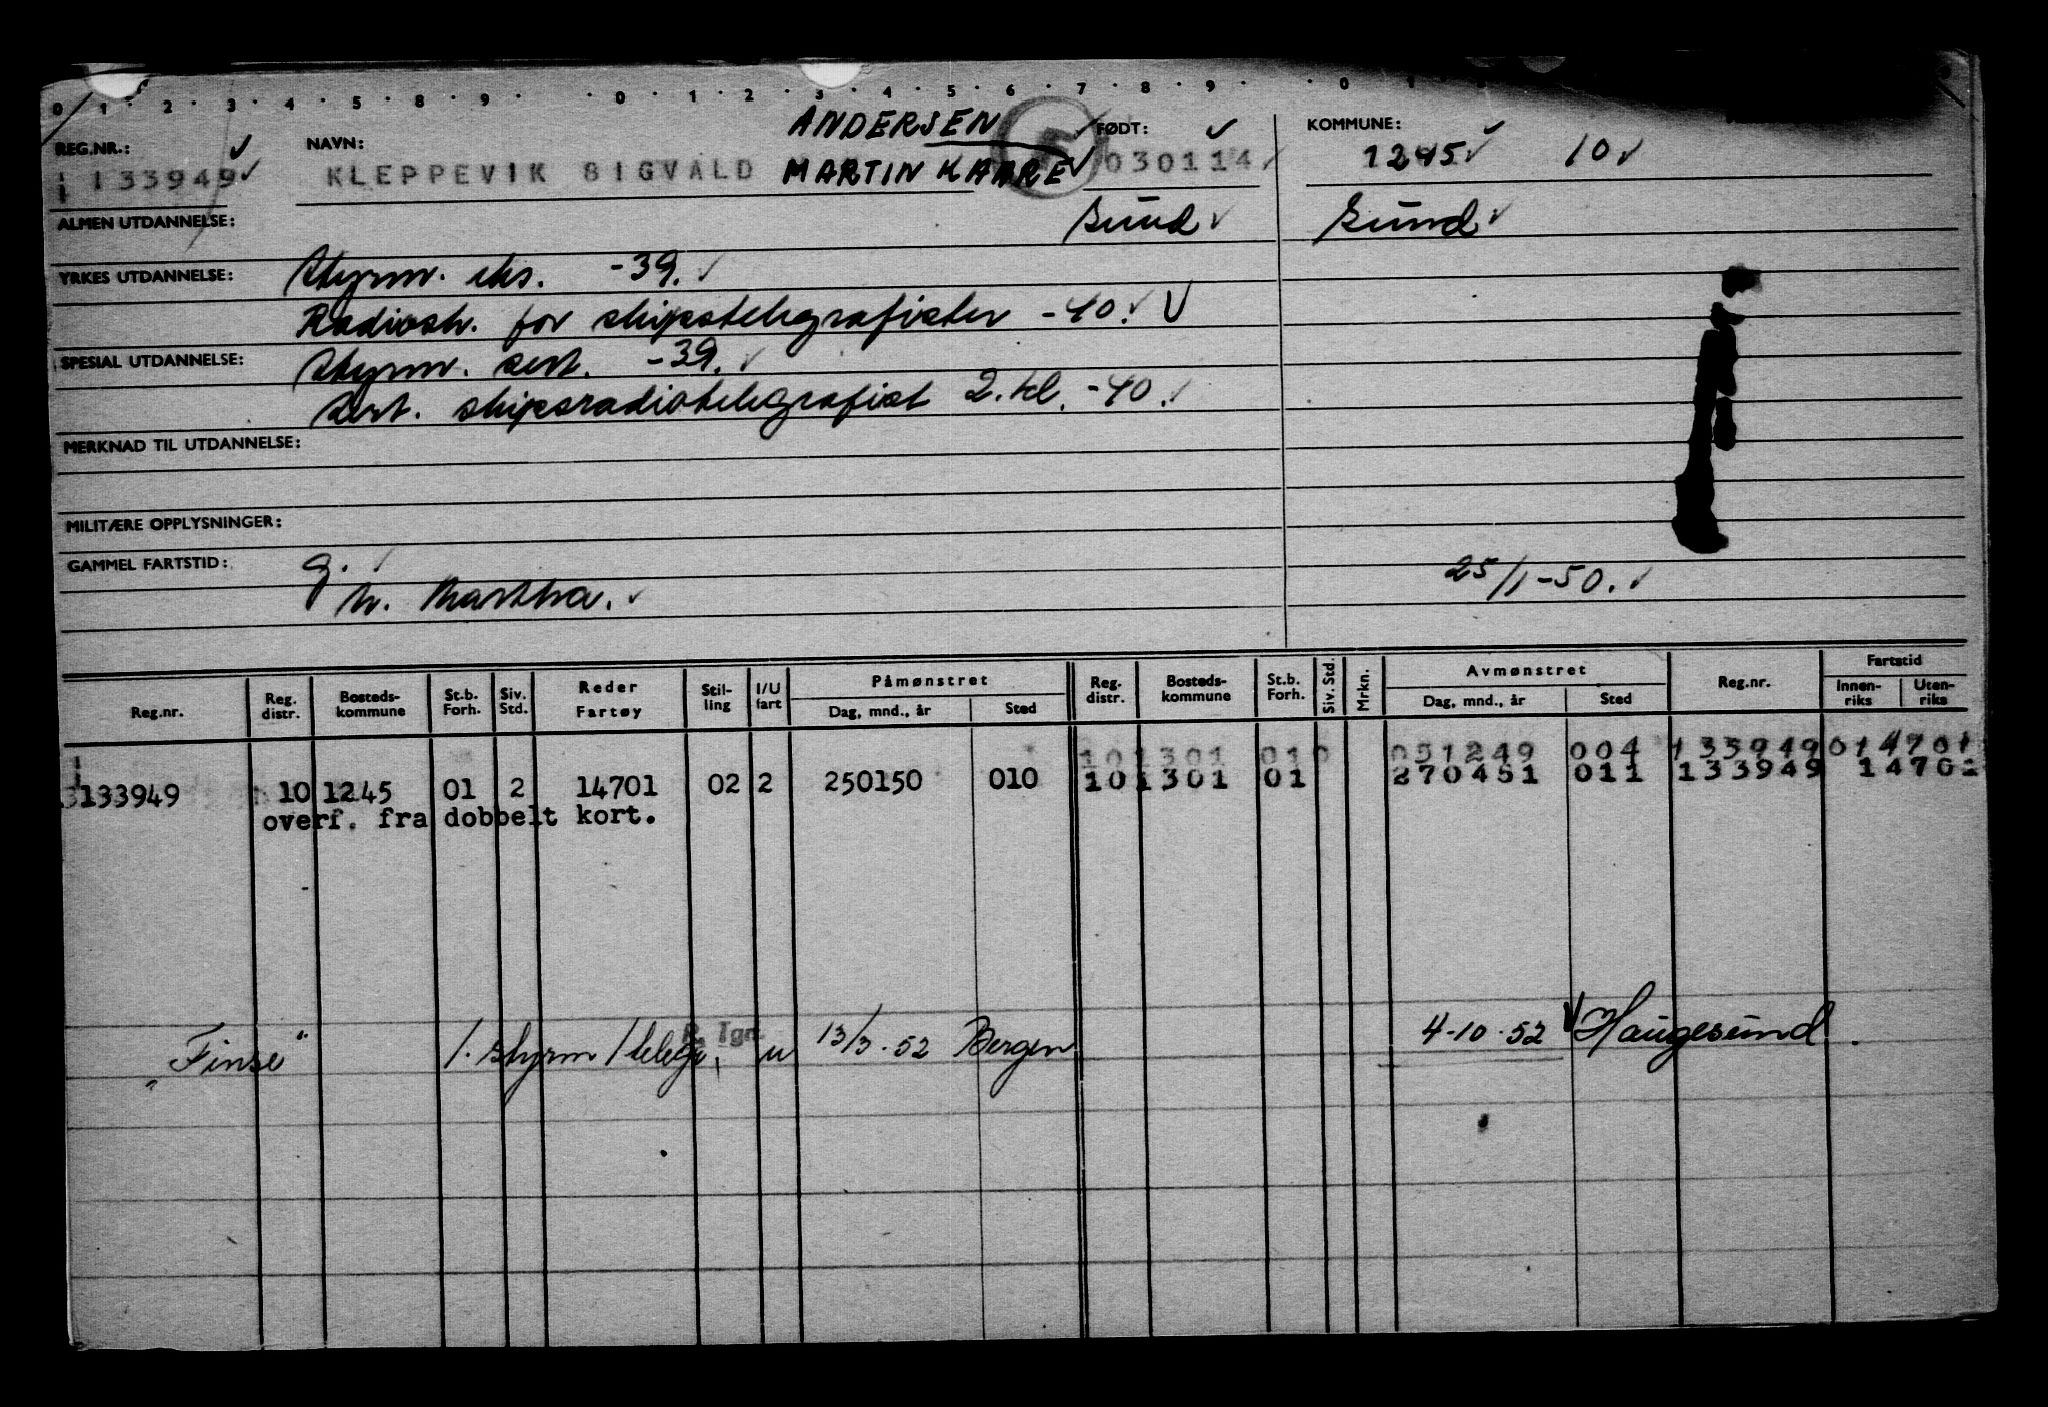 0 · 1 · 2 · 3 · 4 · 5 · 8 · 9 · · 0 · 1 · 2 · 3 · 4 · 5 · 6 · 7 · 8 · 9 · · 0 · 1
REG.NR.: NAVN: ANDERSEN FØDT: KOMMUNE:
133949 KLEPPEVIK SIGVALD MARTIN KAARE 030114 1245 10
ALMEN UTDANNELSE: Sund Sund
YRKES UTDANNELSE: Styrm. eks. -39.
Radiosk. for skipstelegrafister -40.
SPESIAL UTDANNELSE: Styrm. sert. -39.
Sert. skipsradiotelegrafist 2. kl. -40.
MERKNAD TIL UTDANNELSE:
MILITÆRE OPPLYSNINGER:
GAMMEL FARTSTID: g.
M. Martha. 25/1-50.
Reg.nr. Reg. distr. Bosteds-kommune St.b. Forh. Siv. Std. Reder Fartøy Stil-ling I/U fart Påmønstret Dag, mnd., år Sted Reg. distr. Bosteds-kommune St.b. Forh. Siv. Std. Mrkn. Avmønstret Dag, mnd., år Sted Reg.nr. Fartstid Innen-riks Uten-riks
101301 010 051249 004 133949 014701
133949 10 1245 01 2 14701 02 2 250150 010 101301 01 270451 011 133949 14701
overf. fra dobbelt kort.
"Finse" 1. styrm/telegr. R. Ign. u 13/3-52 Bergen 4-10-52 Haugesund.